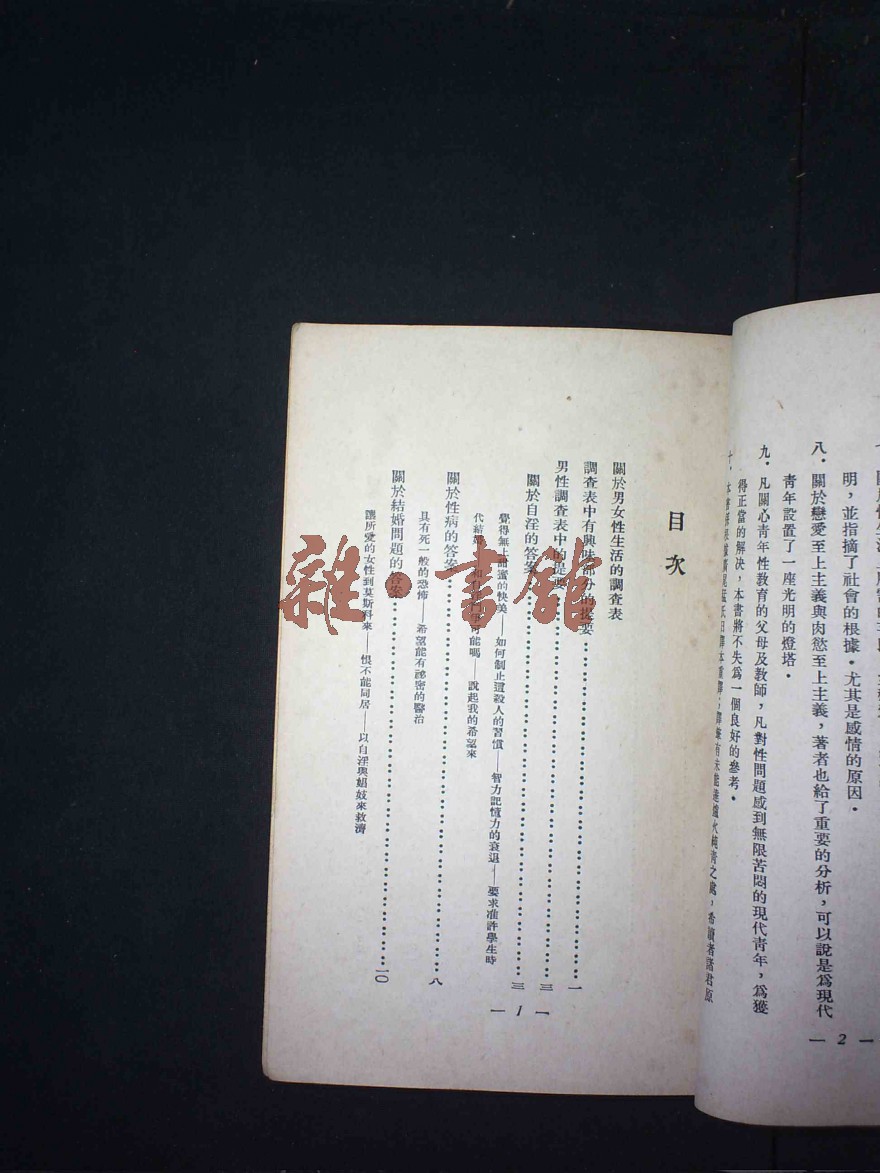 明，並指摘了社會的根據．尤其是感情的原因．
八．關於戀愛至上主義與肉慾至上主義，著者也給了重要的分析，可以說是爲現代
青年設置了一座光明的燈塔．
九．凡關心青年性教育的父母及教師，凡對性問題感到無限苦悶的現代青年，爲獲
得正當的解決，本書將不失爲一個良好的參考．
— 2 —
目次
關於男女性生活的調查表
調查表中有興味部分的提要…………一
男性調查表中的提要…………三
關於自淫的答案…………三
覺得無上甜蜜的快美——如何制止這殺人的習慣——智力記憶力的衰退——要求准許學生時
代結婚——可能嗎——說起我的希望來
關於性病的答案…………八
具有死一般的恐怖——希望能有祕密的醫治
關於結婚問題的答案…………一〇
讓所愛的女性到莫斯科來——恨不能同居——以自淫與娼妓來救濟
— 1 —
雜·書館